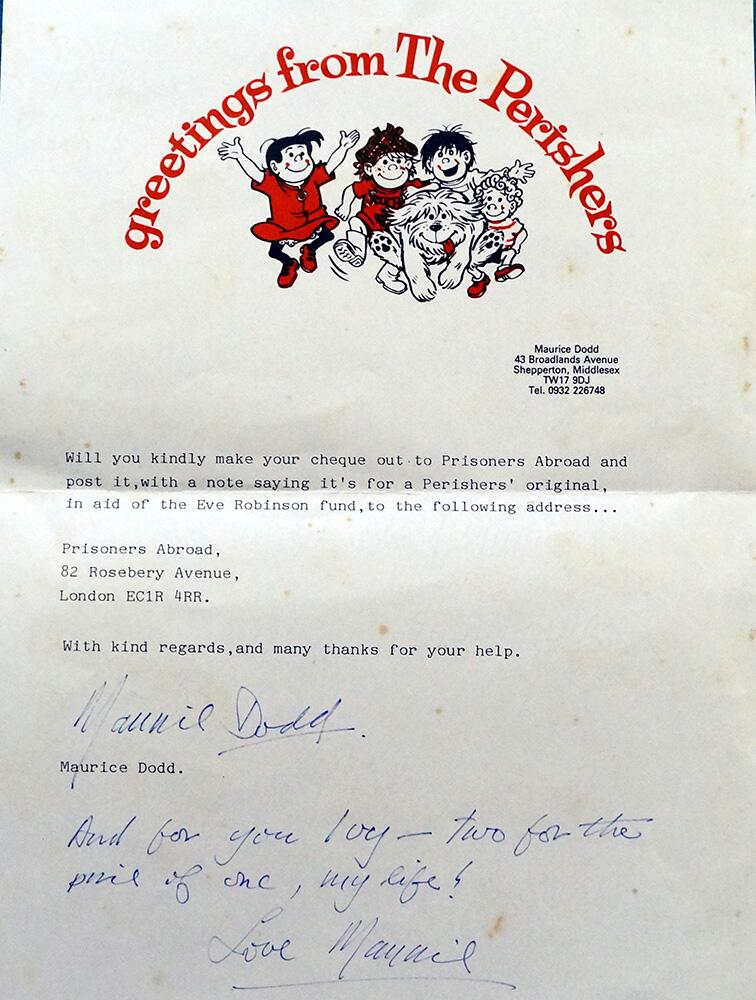 greetings from The Perishers
Maurice Dodd
43 Broadlands Avenue
Shepperton, Middlesex
TW17 9DJ
Tel. 0932 226748
Will you kindly make your cheque out to Prisoners Abroad and
post it,with a note saying it's for a Perishers' original,
in aid of the Eve Robinson fund,to the following address...
Prisoners Abroad,
82 Rosebery Avenue,
London EC1R 4RR.
With kind regards,and many thanks for your help.
Maurice Dodd.
Maurice Dodd.
And for you Ivy — two for the
price of one, my life!
Love Maurice